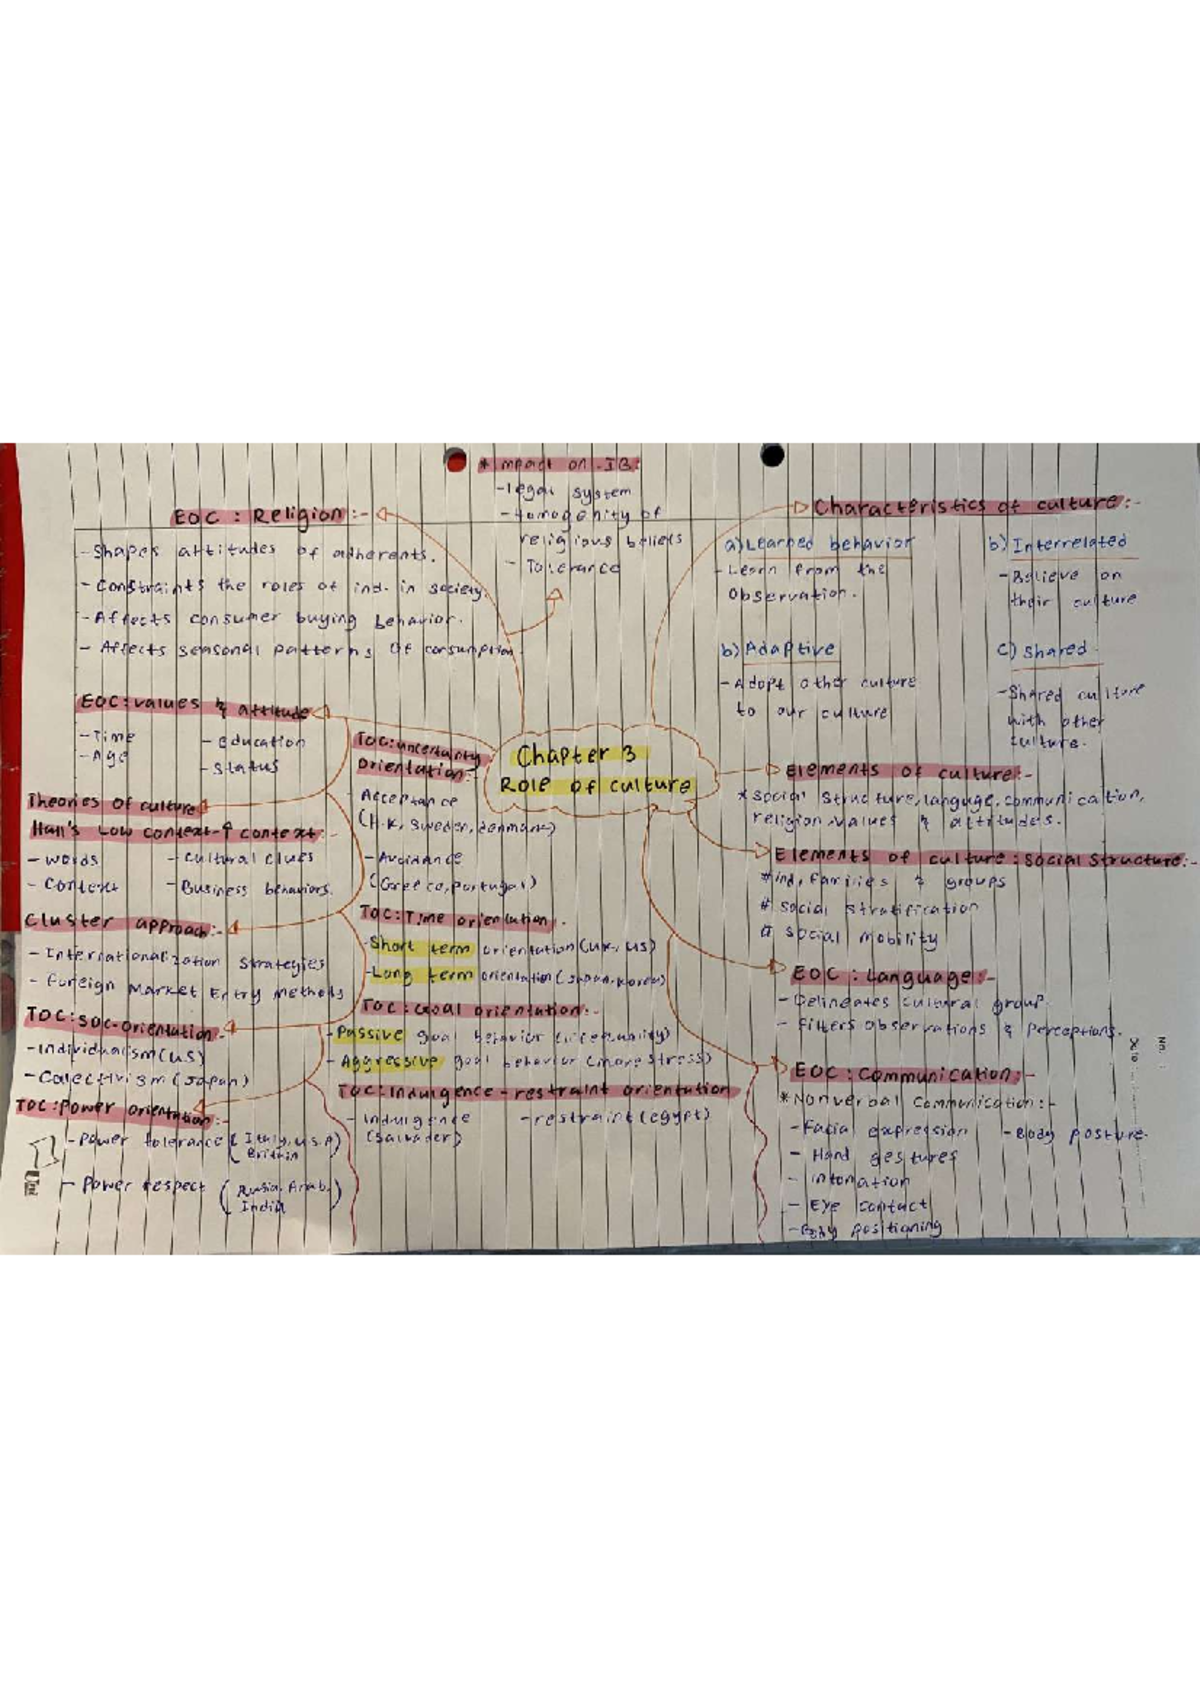 Chapter 3
Role of culture
* Impact on IB:
- legal system
- Homogenity of
religious beliefs
- Tolerance
EOC : Religion :-
- Shapes attitudes of adherents.
- Constraints the roles of ind. in society.
- Affects consumer buying behavior.
- Affects seasonal patterns of consumption
EOC : values & attitude
- Time
- Age
- Education
- Status
Theories of culture
Hall's Low context-↑ context :-
- words
- Context
- Cultural clues
- Business behaviors.
Cluster approach:-
- Internationalization strategies
- Foreign Market Entry Methods
TOC : soc-orientation
- Individualism (US)
- Colectivism (Japan)
TOC : Power orientation:-
- Power tolerance ( Italy, U.S.A)
Brittin
- Power respect ( Rusia, Arab,
India )
Uni
TOC : uncertainty
Orientation:-
Acceptance
(H.K, Sweden, Denmark)
- Avoidance
(Greece, Portugal)
TOC : Time orientation.
-Short term orientation (UK, US)
-Long term orientation (Japan, Korea)
TOC : Goal orientation:-
- Passive goal behavior
- Aggressive goal behavior (more stress)
TOC: Indurgence - restraint orientation
- Indurgence
(Salvader)
- restraint (egypt)
Characteristics of culture:-
a) Learned behavior
- Learn from the
Observation.
b) Interrelated
- Believe on
their culture
b) Adaptive
- Adopt other culture
to our culture
c) Shared
- Shared culture
with other
culture.
Elements of culture:-
* Social Structure, languge, communication,
religion values & attitudes.
Elements of culture : Social Structure:-
# ind, families & groups
# Social Stratification
# Social Mobility
EOC : Language:-
- Delineates cultural group.
- Filters observations & perceptions.
EOC : Communication:-
* Nonverbal Communication:-
- Facial expression
- Body posture.
- Hand gestures
- intonation
- Eye contact
- Body positioning
No.
Date